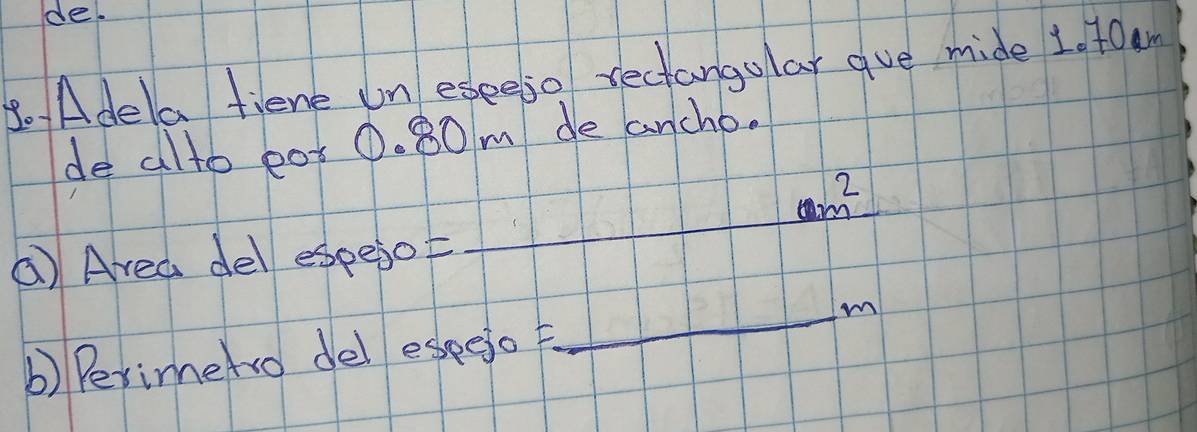 de.
1.- Adela tiene un espejo rectangular que mide 1.70 m
de alto por 0.80 m de ancho.
a) Area del espejo = ________ m²
b) Perimetro del espejo = ________ m